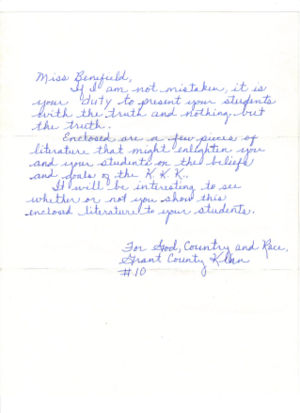 Miss Benefield,
If I am not mistaken, it is
your duty to present your students
with the truth and nothing but
the truth.
Enclosed are a few pieces of
literature that might enlighten you
and your students on the beliefs
and goals of the K.K.K.
It will be interesting to see
whether or not you show this
enclosed literature to your students.
For God, Country and Race,
Grant County Klan
#10